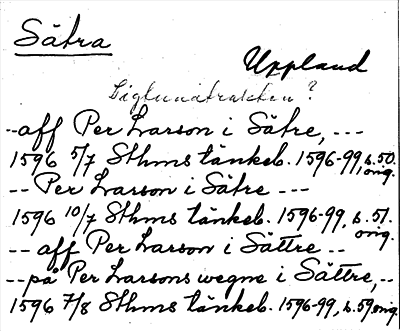 Sätra
Uppland
Sigtunatrakten?
--aff Per Larson i Sätre, ---
1596 5/7 Sthms tänkeb. 1596-99, s. 50. orig.
-- Per Larson i Sätre ---
1596 10/7 Sthms tänkeb. 1596-99, s. 51. orig.
-- aff Per Larson i Sättre --
--på Per Larsons wegne i Sättre,--
1596 7/8 Sthms tänkeb. 1596-99, s. 59 orig.